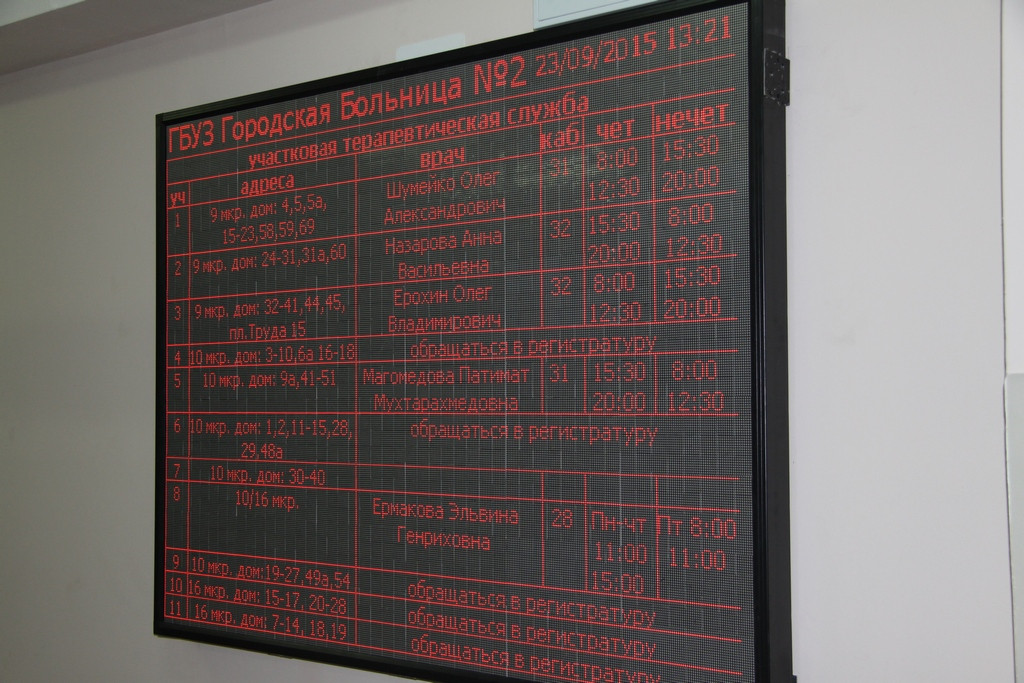 ГБУЗ Городская Больница №2 23/09/2015 13:21
участковая терапевтическая служба
уч адреса врач каб чет нечет
1 9 мкр. дом: 4,5,5а, Шумейко Олег 31 8:00 15:30
15-23,58,59,69 Александрович 12:30 20:00
2 9 мкр. дом: 24-31,31а,60 Назарова Анна 32 15:30 8:00
Васильевна 20:00 12:30
3 9 мкр. дом: 32-41,44,45, Ерохин Олег 32 8:00 15:30
пл.Труда 15 Владимирович 12:30 20:00
4 10 мкр. дом: 3-10,6а 16-18 обращаться в регистратуру
5 10 мкр. дом: 9а,41-51, Магомедова Патимат 31 15:30 8:00
Мухтарахмедовна 20:00 12:30
6 10 мкр. дом: 1,2,11-15,28, обращаться в регистратуру
29,48а
7 10 мкр. дом: 30-40
8 10/16 мкр. Ермакова Эльвина 28 Пн-чт Пт 8:00
Генриховна 11:00 11:00
15:00
9 10 мкр. дом:19-27,49а,54 обращаться в регистратуру
10 16 мкр. дом: 15-17, 20-28 обращаться в регистратуру
11 16 мкр. дом: 7-14, 18,19 обращаться в регистратуру